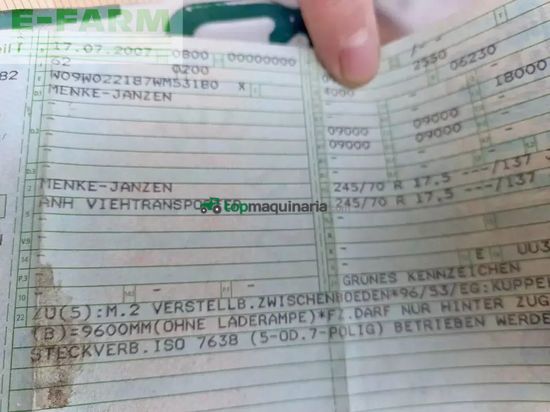 E-FARM
17.07.2007 0800 00000000
62 0200 2550 06230
82 W09W022187WM53180 X 4000
MENKE-JANZEN 18000
09000 09000
09000 09000
MENKE-JANZEN 245/70 R 17.5 ---/137
ANH VIEHTRANSPORTER 245/70 R 17.5 ---/137
topmaquinaria.com
E UU3
GRÜNES KENNZEICHEN
22 ZU(5):M.2 VERSTELLB.ZWISCHENBOEDEN*96/53/EG:KUPPE
(B)=9600MM(OHNE LADERAMPE)*FZ.DARF NUR HINTER ZUG
STECKVERB.ISO 7638 (5-OD.7-POLIG) BETRIEBEN WERDE